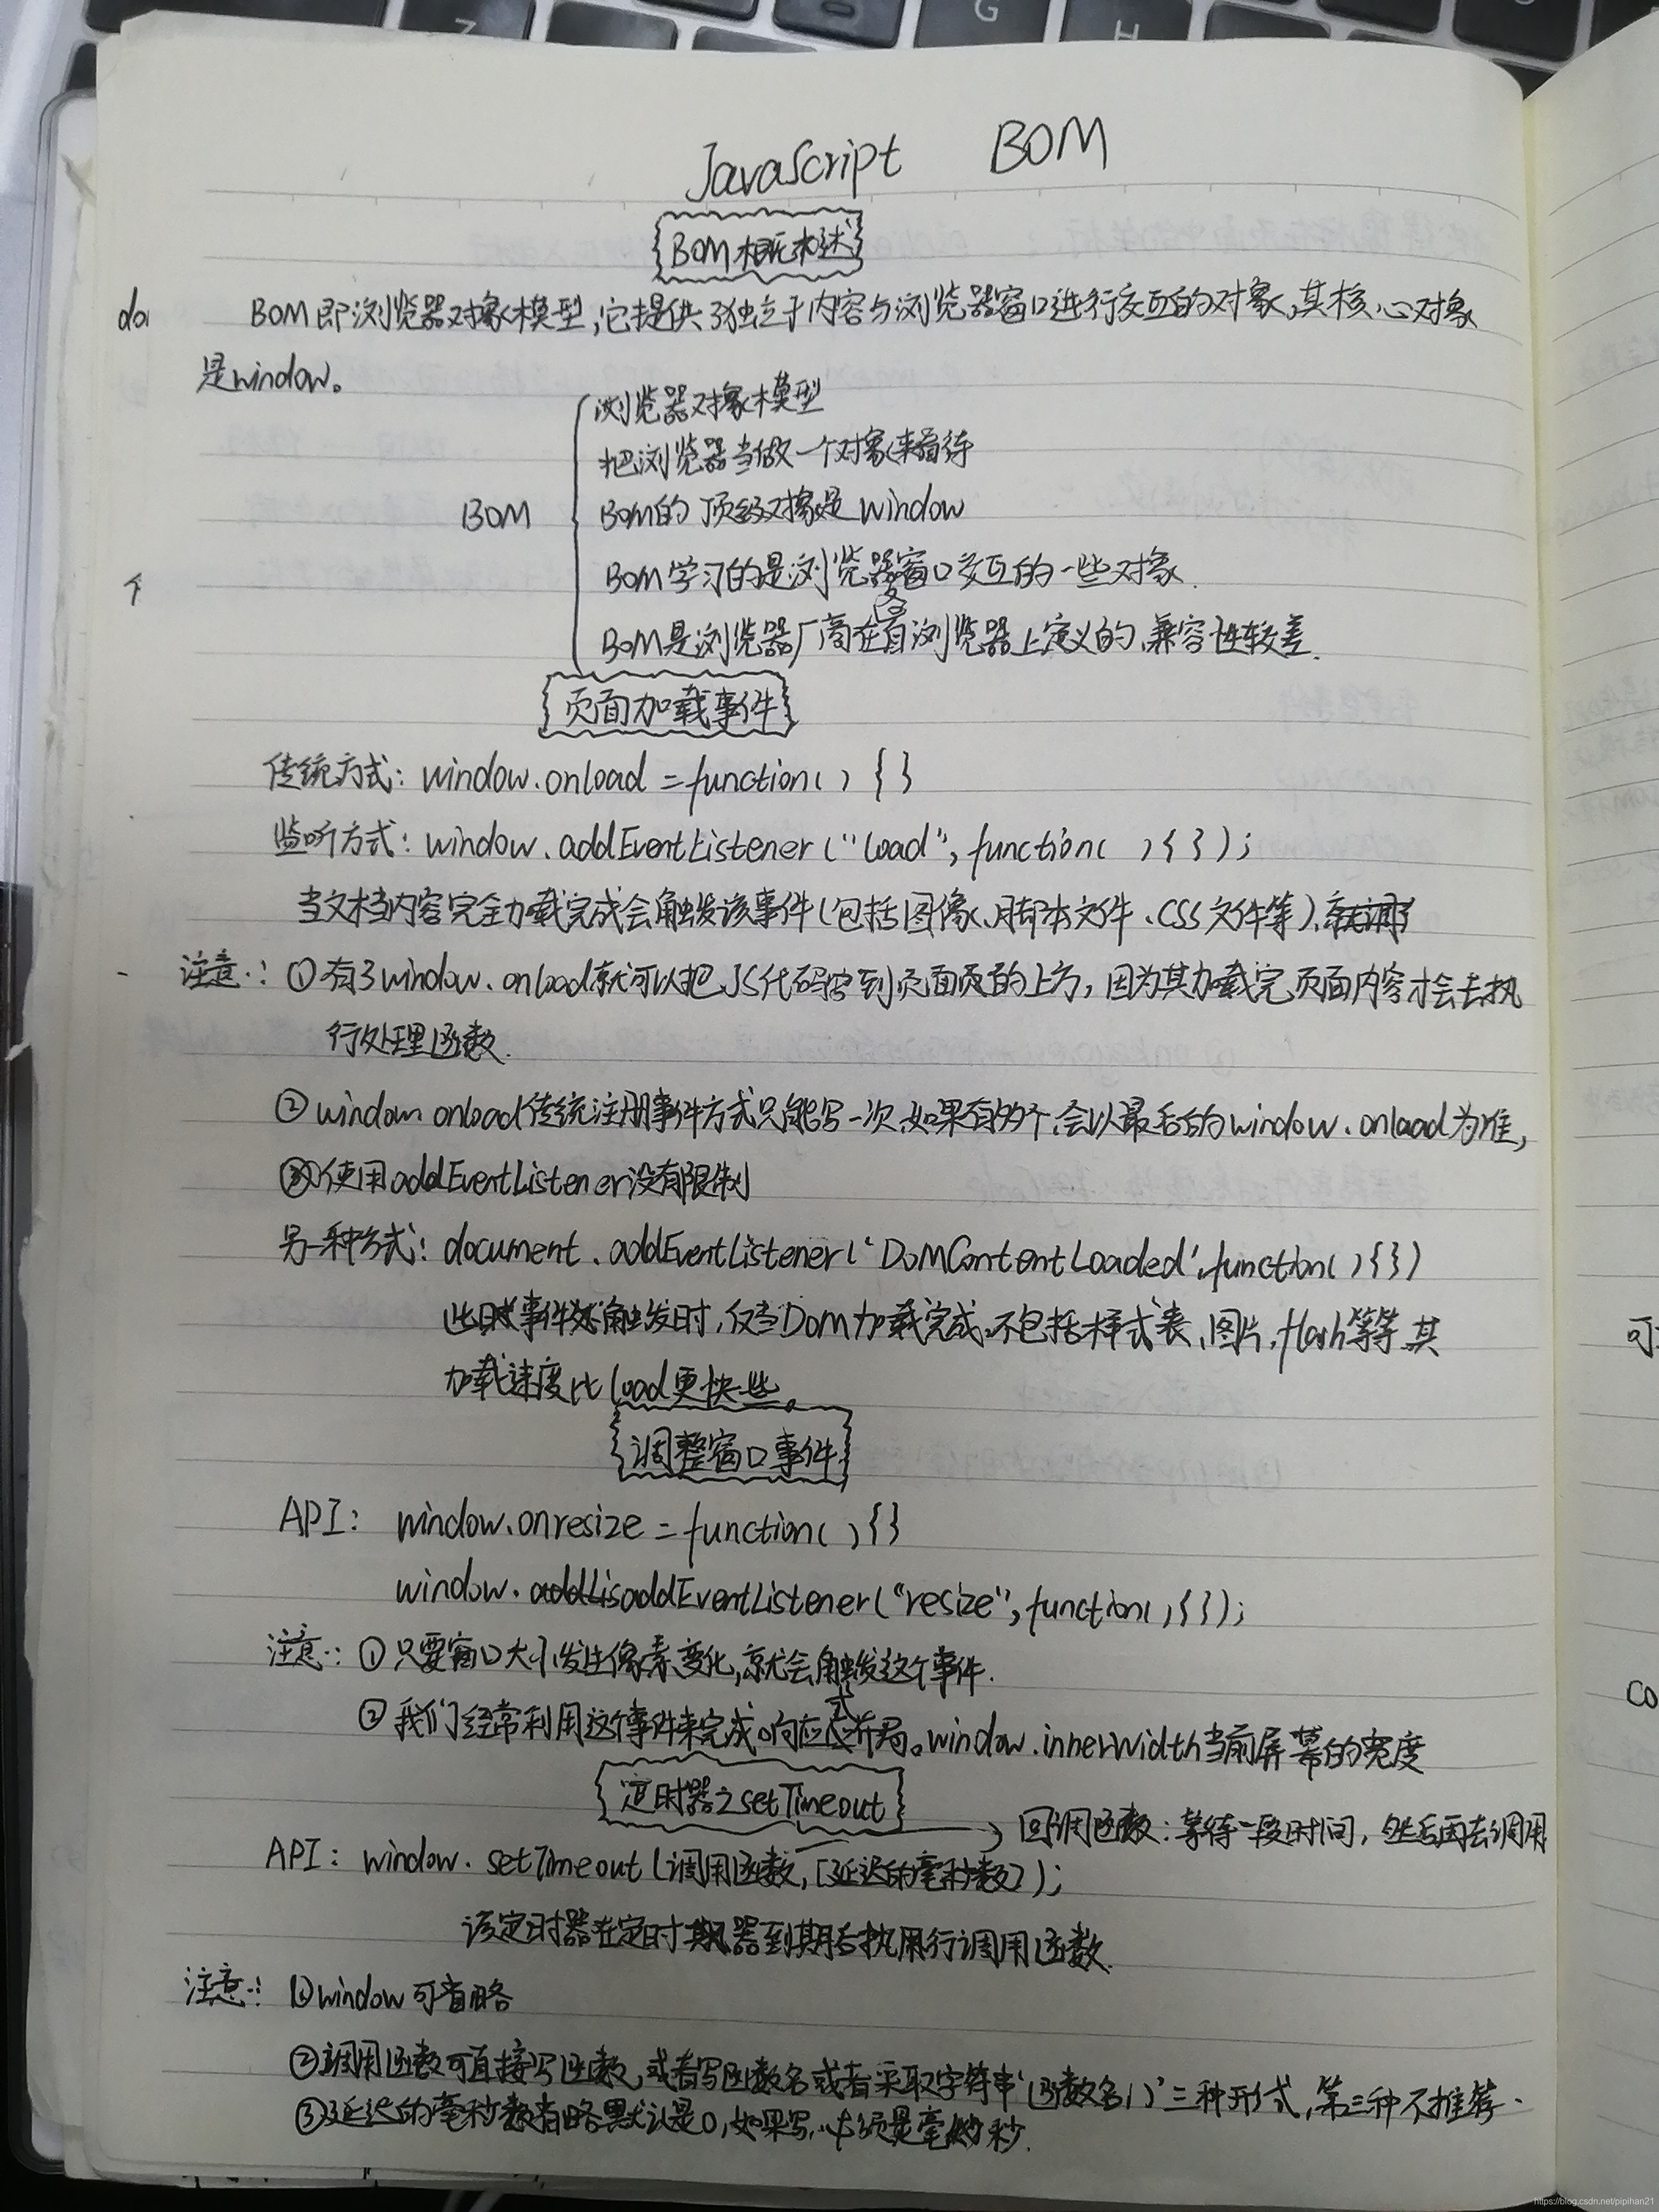 JavaScript BOM
BOM概述
BOM即浏览器对象模型,它提供了独立于内容与浏览器窗口进行交互的对象,其核心对象
是window。
浏览器对象模型
把浏览器当做一个对象来看待
BOM
BOM的顶级对象是window
BOM学习的是浏览器窗口交互的一些对象.
BOM是浏览器厂商在各自浏览器上定义的,兼容性较差.
页面加载事件
传统方式: window.onload = function() {}
监听方式: window.addEventListener("load", function( ){ });
当文档内容完全加载完成会触发该事件(包括图像、脚本文件、CSS文件等),
注意: ①有了window.onload就可以把JS代码写到页面的上方, 因为其加载完页面内容才会去执
行处理函数.
②window onload传统注册事件方式只能写一次,如果有多个,会以最后的window.onload为准,
③使用addEventListener没有限制
另一种方式: document.addEventListener('DOMContentLoaded',function( ){})
此事件触发时,仅当DOM加载完成,不包括样式表,图片,flash等等.其
加载速度比load更快些。
调整窗口事件
API: window.onresize = function( ){}
window.addEventListener("resize", function( ){ });
注意: ①只要窗口大小发生像素变化,就会触发这个事件.
②我们经常利用这个事件来完成响应式布局。window.innerWidth当前屏幕的宽度
定时器之setTimeout
回调函数: 等待一段时间, 然后再去调用
API: window. setTimeout(调用函数, [延迟的毫秒数]);
该定时器在定时器到期后执行调用函数.
注意: ①window可省略
②调用函数可直接写函数,或者写函数名或者采取字符串'函数名()'三种形式,第三种不推荐.
③延迟的毫秒数省略默认是0,如果写,必须是毫秒.
G
Z
H
个
可
co
https://blog.csdn.net/pipihan21